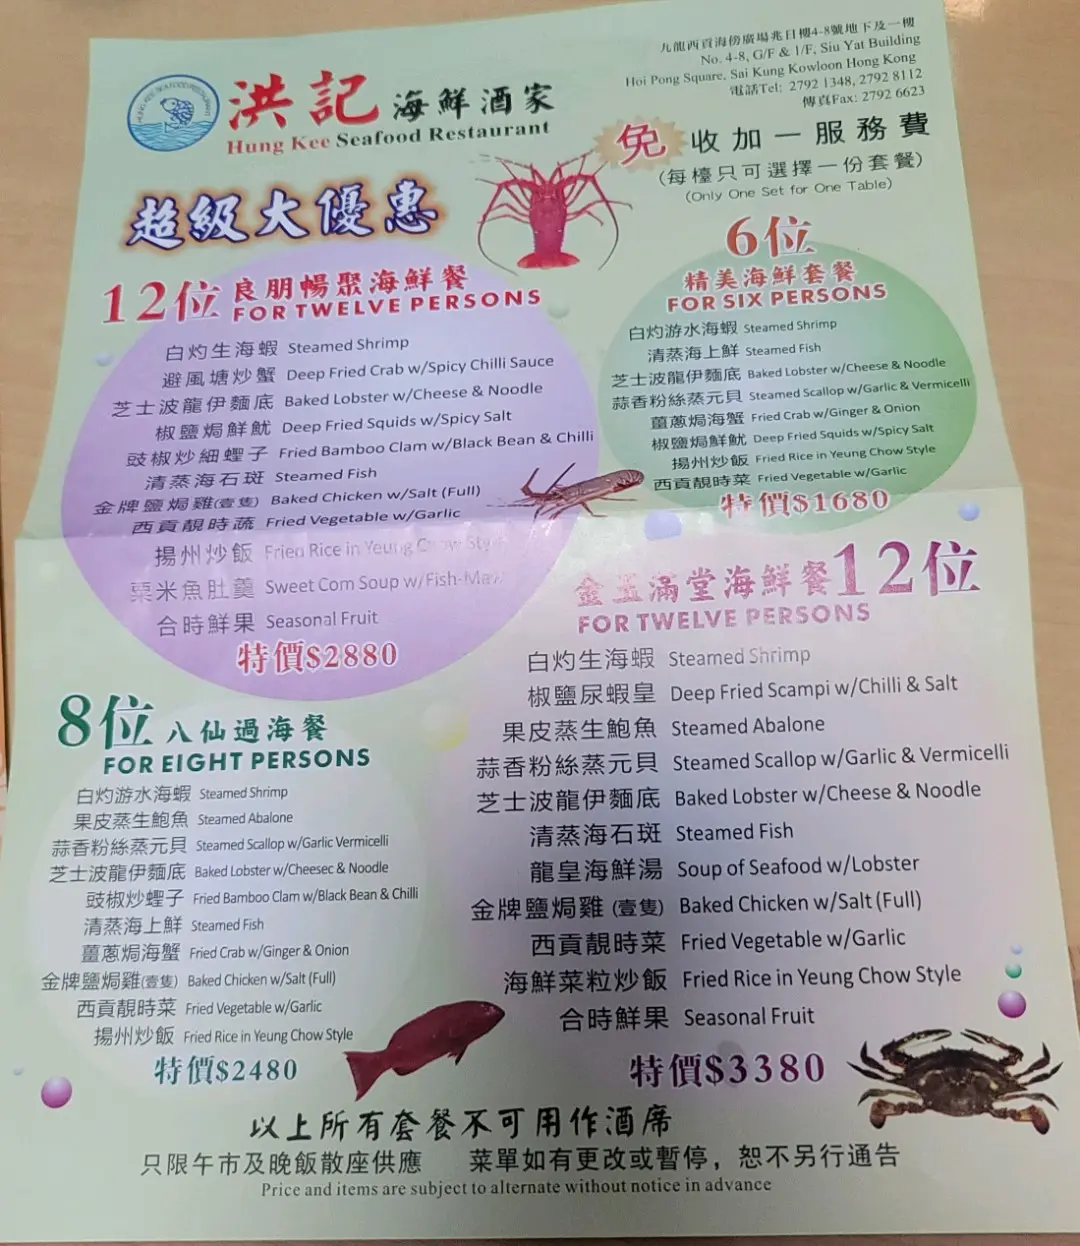 HUNG KEE SEAFOOD RESTAURANT
洪記海鮮酒家
Hung Kee Seafood Restaurant
九龍西貢海傍廣場兆日樓4-8號地下及一樓
No. 4-8, G/F & 1/F, Siu Yat Building
Hoi Pong Square, Sai Kung Kowloon Hong Kong
電話Tel: 2792 1348, 2792 8112
傳真Fax: 2792 6623
免收加一服務費
(每檯只可選擇一份套餐)
(Only One Set for One Table)
超級大優惠
12位 良朋暢聚海鮮餐
FOR TWELVE PERSONS
白灼生海蝦 Steamed Shrimp
避風塘炒蟹 Deep Fried Crab w/Spicy Chilli Sauce
芝士波龍伊麵底 Baked Lobster w/Cheese & Noodle
椒鹽焗鮮魷 Deep Fried Squids w/Spicy Salt
豉椒炒細蟶子 Fried Bamboo Clam w/Black Bean & Chilli
清蒸海石斑 Steamed Fish
金牌鹽焗雞(壹隻) Baked Chicken w/Salt (Full)
西貢靚時蔬 Fried Vegetable w/Garlic
揚州炒飯 Fried Rice in Yeung Chow Style
粟米魚肚羹 Sweet Corn Soup w/Fish-Maw
合時鮮果 Seasonal Fruit
特價$2880
6位
精美海鮮套餐
FOR SIX PERSONS
白灼游水海蝦 Steamed Shrimp
清蒸海上鮮 Steamed Fish
芝士波龍伊麵底 Baked Lobster w/Cheese & Noodle
蒜香粉絲蒸元貝 Steamed Scallop w/Garlic & Vermicelli
薑蔥焗海蟹 Fried Crab w/Ginger & Onion
椒鹽焗鮮魷 Deep Fried Squids w/Spicy Salt
揚州炒飯 Fried Rice in Yeung Chow Style
西貢靚時菜 Fried Vegetable w/Garlic
特價$1680
8位 八仙過海餐
FOR EIGHT PERSONS
白灼游水海蝦 Steamed Shrimp
果皮蒸生鮑魚 Steamed Abalone
蒜香粉絲蒸元貝 Steamed Scallop w/Garlic Vermicelli
芝士波龍伊麵底 Baked Lobster w/Cheesec & Noodle
豉椒炒蟶子 Fried Bamboo Clam w/Black Bean & Chilli
清蒸海上鮮 Steamed Fish
薑蔥焗海蟹 Fried Crab w/Ginger & Onion
金牌鹽焗雞(壹隻) Baked Chicken w/Salt (Full)
西貢靚時菜 Fried Vegetable w/Garlic
揚州炒飯 Fried Rice in Yeung Chow Style
特價$2480
金玉滿堂海鮮餐12位
FOR TWELVE PERSONS
白灼生海蝦 Steamed Shrimp
椒鹽尿蝦皇 Deep Fried Scampi w/Chilli & Salt
果皮蒸生鮑魚 Steamed Abalone
蒜香粉絲蒸元貝 Steamed Scallop w/Garlic & Vermicelli
芝士波龍伊麵底 Baked Lobster w/Cheese & Noodle
清蒸海石斑 Steamed Fish
龍皇海鮮湯 Soup of Seafood w/Lobster
金牌鹽焗雞 (壹隻) Baked Chicken w/Salt (Full)
西貢靚時菜 Fried Vegetable w/Garlic
海鮮菜粒炒飯 Fried Rice in Yeung Chow Style
合時鮮果 Seasonal Fruit
特價$3380
以上所有套餐不可用作酒席
只限午市及晚飯散座供應 菜單如有更改或暫停，恕不另行通告
Price and items are subject to alternate without notice in advance